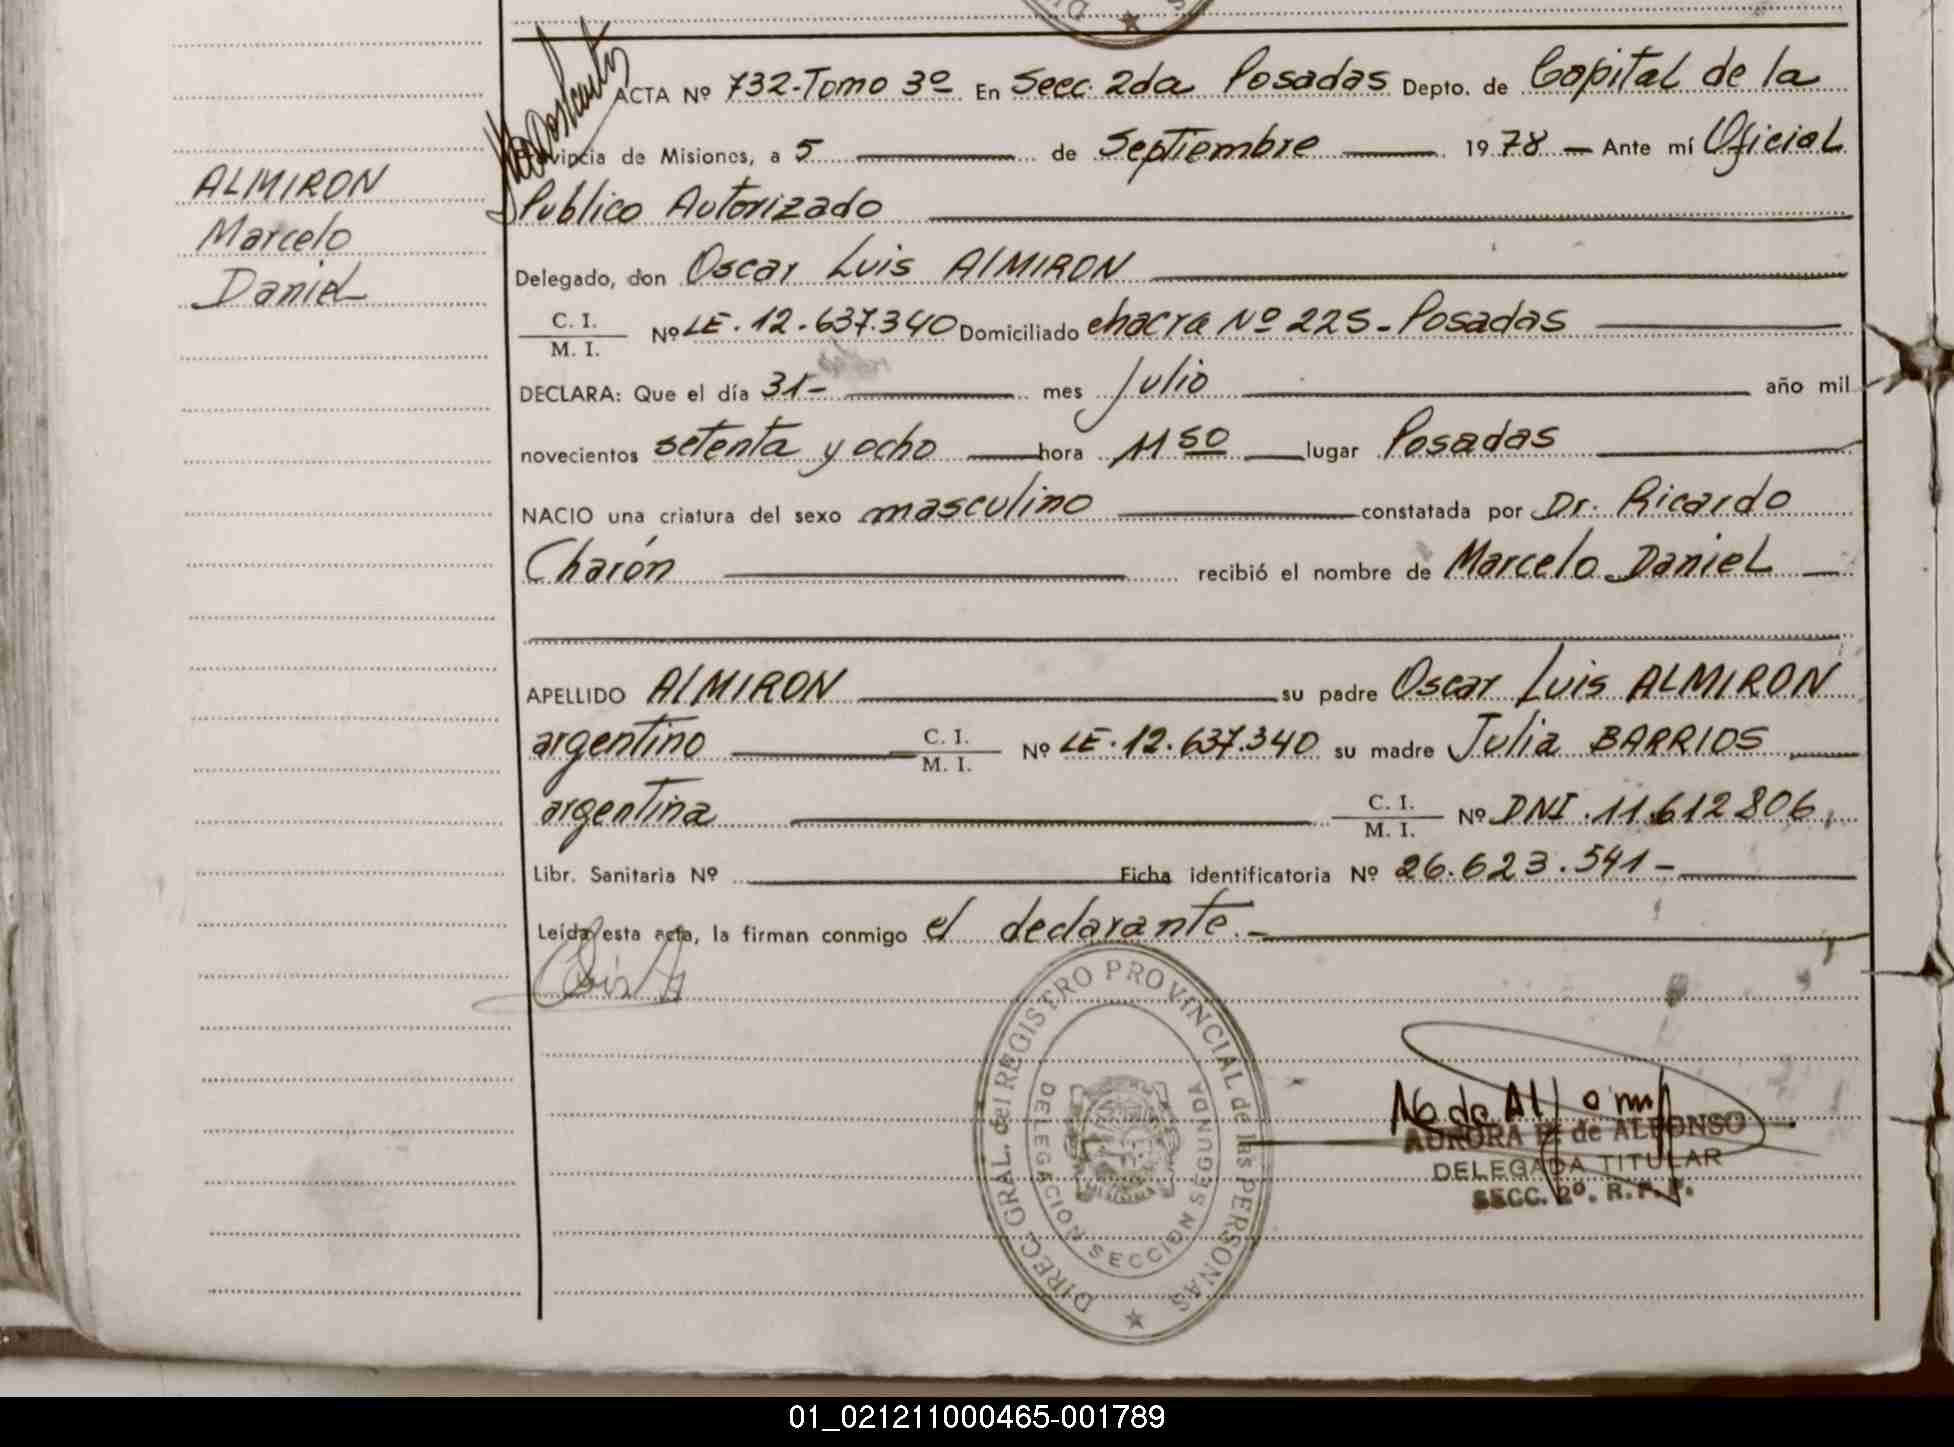 ACTA Nº 732-Tomo 3º En Secc. 2da Posadas Depto. de Capital de la
Provincia de Misiones, a 5 de Septiembre 1978 - Ante mí Oficial
Publico Autorizado
ALMIRON
Marcelo
Daniel
Delegado, don Oscar Luis AlMIRON
C. I.
M. I.
Nº LE. 12.637.340 Domiciliado chacra Nº 225- Posadas
DECLARA: Que el día 31- mes Julio año mil
novecientos setenta y ocho hora 11 50 lugar Posadas
NACIO una criatura del sexo masculino constatada por Dr. Ricardo
Charón recibió el nombre de Marcelo Daniel
APELLIDO AlMIRON su padre Oscar Luis ALMIRON
argentino C. I. M. I. Nº LE. 12.637.340 su madre Julia BARRIOS
argentina C. I. M. I. Nº DNI. 11.612806
Libr. Sanitaria Nº Ficha identificatoria Nº 26.623.541-
Leída esta acta, la firman conmigo el declarante.-
DIREC. GRAL. del REGISTRO PROVINCIAL de las PERSONAS
DELEGACION SECCION SEGUNDA
AURORA de ALFONSO
DELEGADA TITULAR
SECC. 2º. R. P. P.
01_021211000465-001789